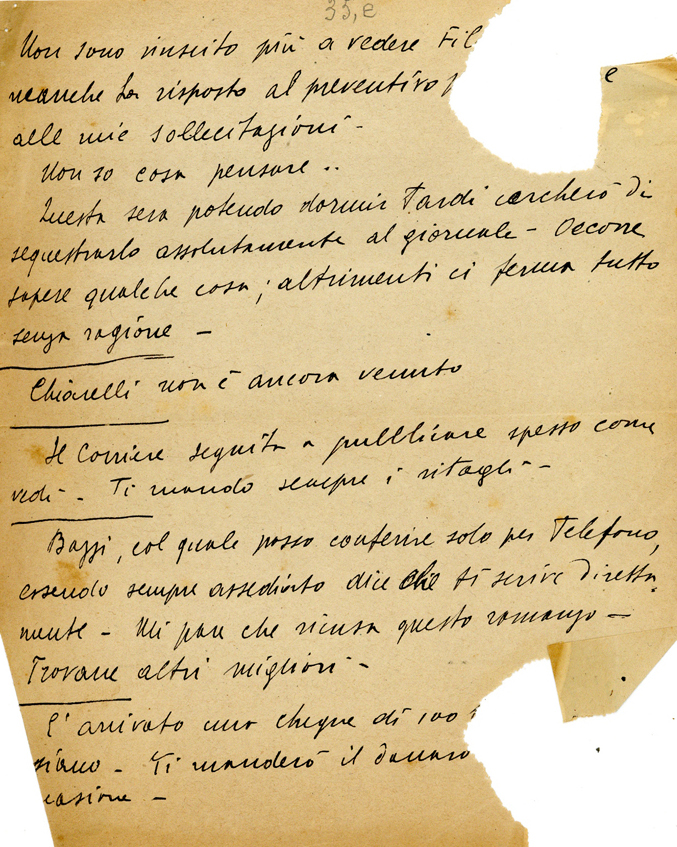 35,e
Non sono riuscito più a vedere Fil
neanche ha risposto al preventivo
e
alle mie sollecitazioni -
Non so cosa pensare ..
Questa sera potendo dormir tardi cercherò di
sequestrarlo assolutamente al giornale - Occorre
sapere qualche cosa ; altrimenti ci ferma tutto
senza ragione -
Chiarelli non è ancora venuto
Il Corriere seguita a pubblicare spesso come
vedi - Ti mando sempre i ritagli -
Bazzi, col quale posso conferire solo per Telefono,
essendo sempre assediato dice che ti scrive diretta
mente - Mi pare che ricusa questo romanzo -
Trovane altri migliori -
E' arrivato uno cheque di 100
siano - Ti manderò il danaro
casione -